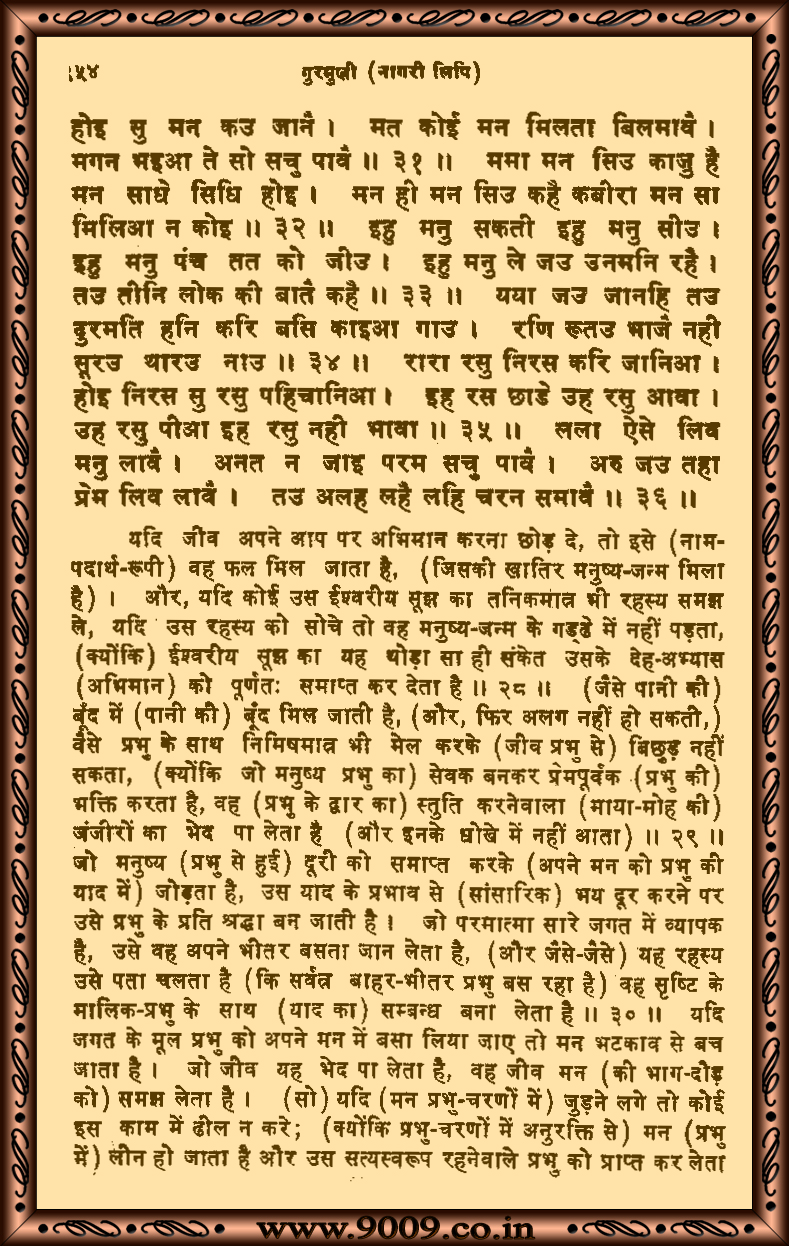 ९५४ गुरमुखी (नागरी लिपि)
होइ सु मन कउ जानै । मत कोई मन मिलता बिलमावै ।
मगन भइआ ते सो सचु पावै ॥ ३१ ॥ ममा मन सिउ काजु है
मन साधे सिधि होइ । मन ही मन सिउ कहै कबीरा मन सा
मिलिआ न कोइ ॥ ३२ ॥ इहु मनु सकती इहु मनु सीउ ।
इहु मनु पंच तत को जीउ । इहु मनु ले जउ उनमनि रहै ।
तउ तीनि लोक की बातै कहै ॥ ३३ ॥ यया जउ जानहि तउ
दुरमति हनि करि बसि काइआ गाउ । रणि रूतउ भाजै नही
सूरउ थारउ नाउ ॥ ३४ ॥ रारा रसु निरस करि जानिआ ।
होइ निरस सु रसु पहिचानिआ । इह रस छाडे उह रसु आवा ।
उह रसु पीआ इह रसु नही भावा ॥ ३५ ॥ लला ऐसे लिव
मनु लावै । अनत न जाइ परम सचु पावै । अरु जउ तहा
प्रेम लिव लावै । तउ अलह लहै लहि चरन समावै ॥ ३६ ॥
यदि जीव अपने आप पर अभिमान करना छोड़ दे, तो इसे (नाम-
पदार्थ-रूपी) वह फल मिल जाता है, (जिसकी खातिर मनुष्य-जन्म मिला
है) । और, यदि कोई उस ईश्वरीय सूझ का तनिकमात्र भी रहस्य समझ
ले, यदि उस रहस्य को सोचे तो वह मनुष्य-जन्म के गड्ढे में नहीं पड़ता,
(क्योंकि) ईश्वरीय सूझ का यह थोड़ा सा ही संकेत उसके देह-अभ्यास
(अभिमान) को पूर्णतः समाप्त कर देता है ॥ २८ ॥ (जैसे पानी की)
बूंद में (पानी की) बूंद मिल जाती है, (और, फिर अलग नहीं हो सकती,)
वैसे प्रभु के साथ निमिषमात्र भी मेल करके (जीव प्रभु से) बिछुड़ नहीं
सकता, (क्योंकि जो मनुष्य प्रभु का) सेवक बनकर प्रेमपूर्वक (प्रभु की)
भक्ति करता है, वह (प्रभु के द्वार का) स्तुति करनेवाला (माया-मोह की)
जंजीरों का भेद पा लेता है (और इनके धोखे में नहीं आता) ॥ २९ ॥
जो मनुष्य (प्रभु से हुई) दूरी को समाप्त करके (अपने मन को प्रभु की
याद में) जोड़ता है, उस याद के प्रभाव से (सांसारिक) भय दूर करने पर
उसे प्रभु के प्रति श्रद्धा बन जाती है । जो परमात्मा सारे जगत में व्यापक
है, उसे वह अपने भीतर बसता जान लेता है, (और जैसे-जैसे) यह रहस्य
उसे पता चलता है (कि सर्वत्र बाहर-भीतर प्रभु बस रहा है) वह सृष्टि के
मालिक-प्रभु के साथ (याद का) सम्बन्ध बना लेता है ॥ ३० ॥ यदि
जगत के मूल प्रभु को अपने मन में बसा लिया जाए तो मन भटकाव से बच
जाता है । जो जीव यह भेद पा लेता है, वह जीव मन (की भाग-दौड़
को) समझ लेता है । (सो) यदि (मन प्रभु-चरणों में) जुड़ने लगे तो कोई
इस काम में ढील न करे; (क्योंकि प्रभु-चरणों में अनुरक्ति से) मन (प्रभु
में) लीन हो जाता है और उस सत्यस्वरूप रहनेवाले प्रभु को प्राप्त कर लेता
www.9009.co.in